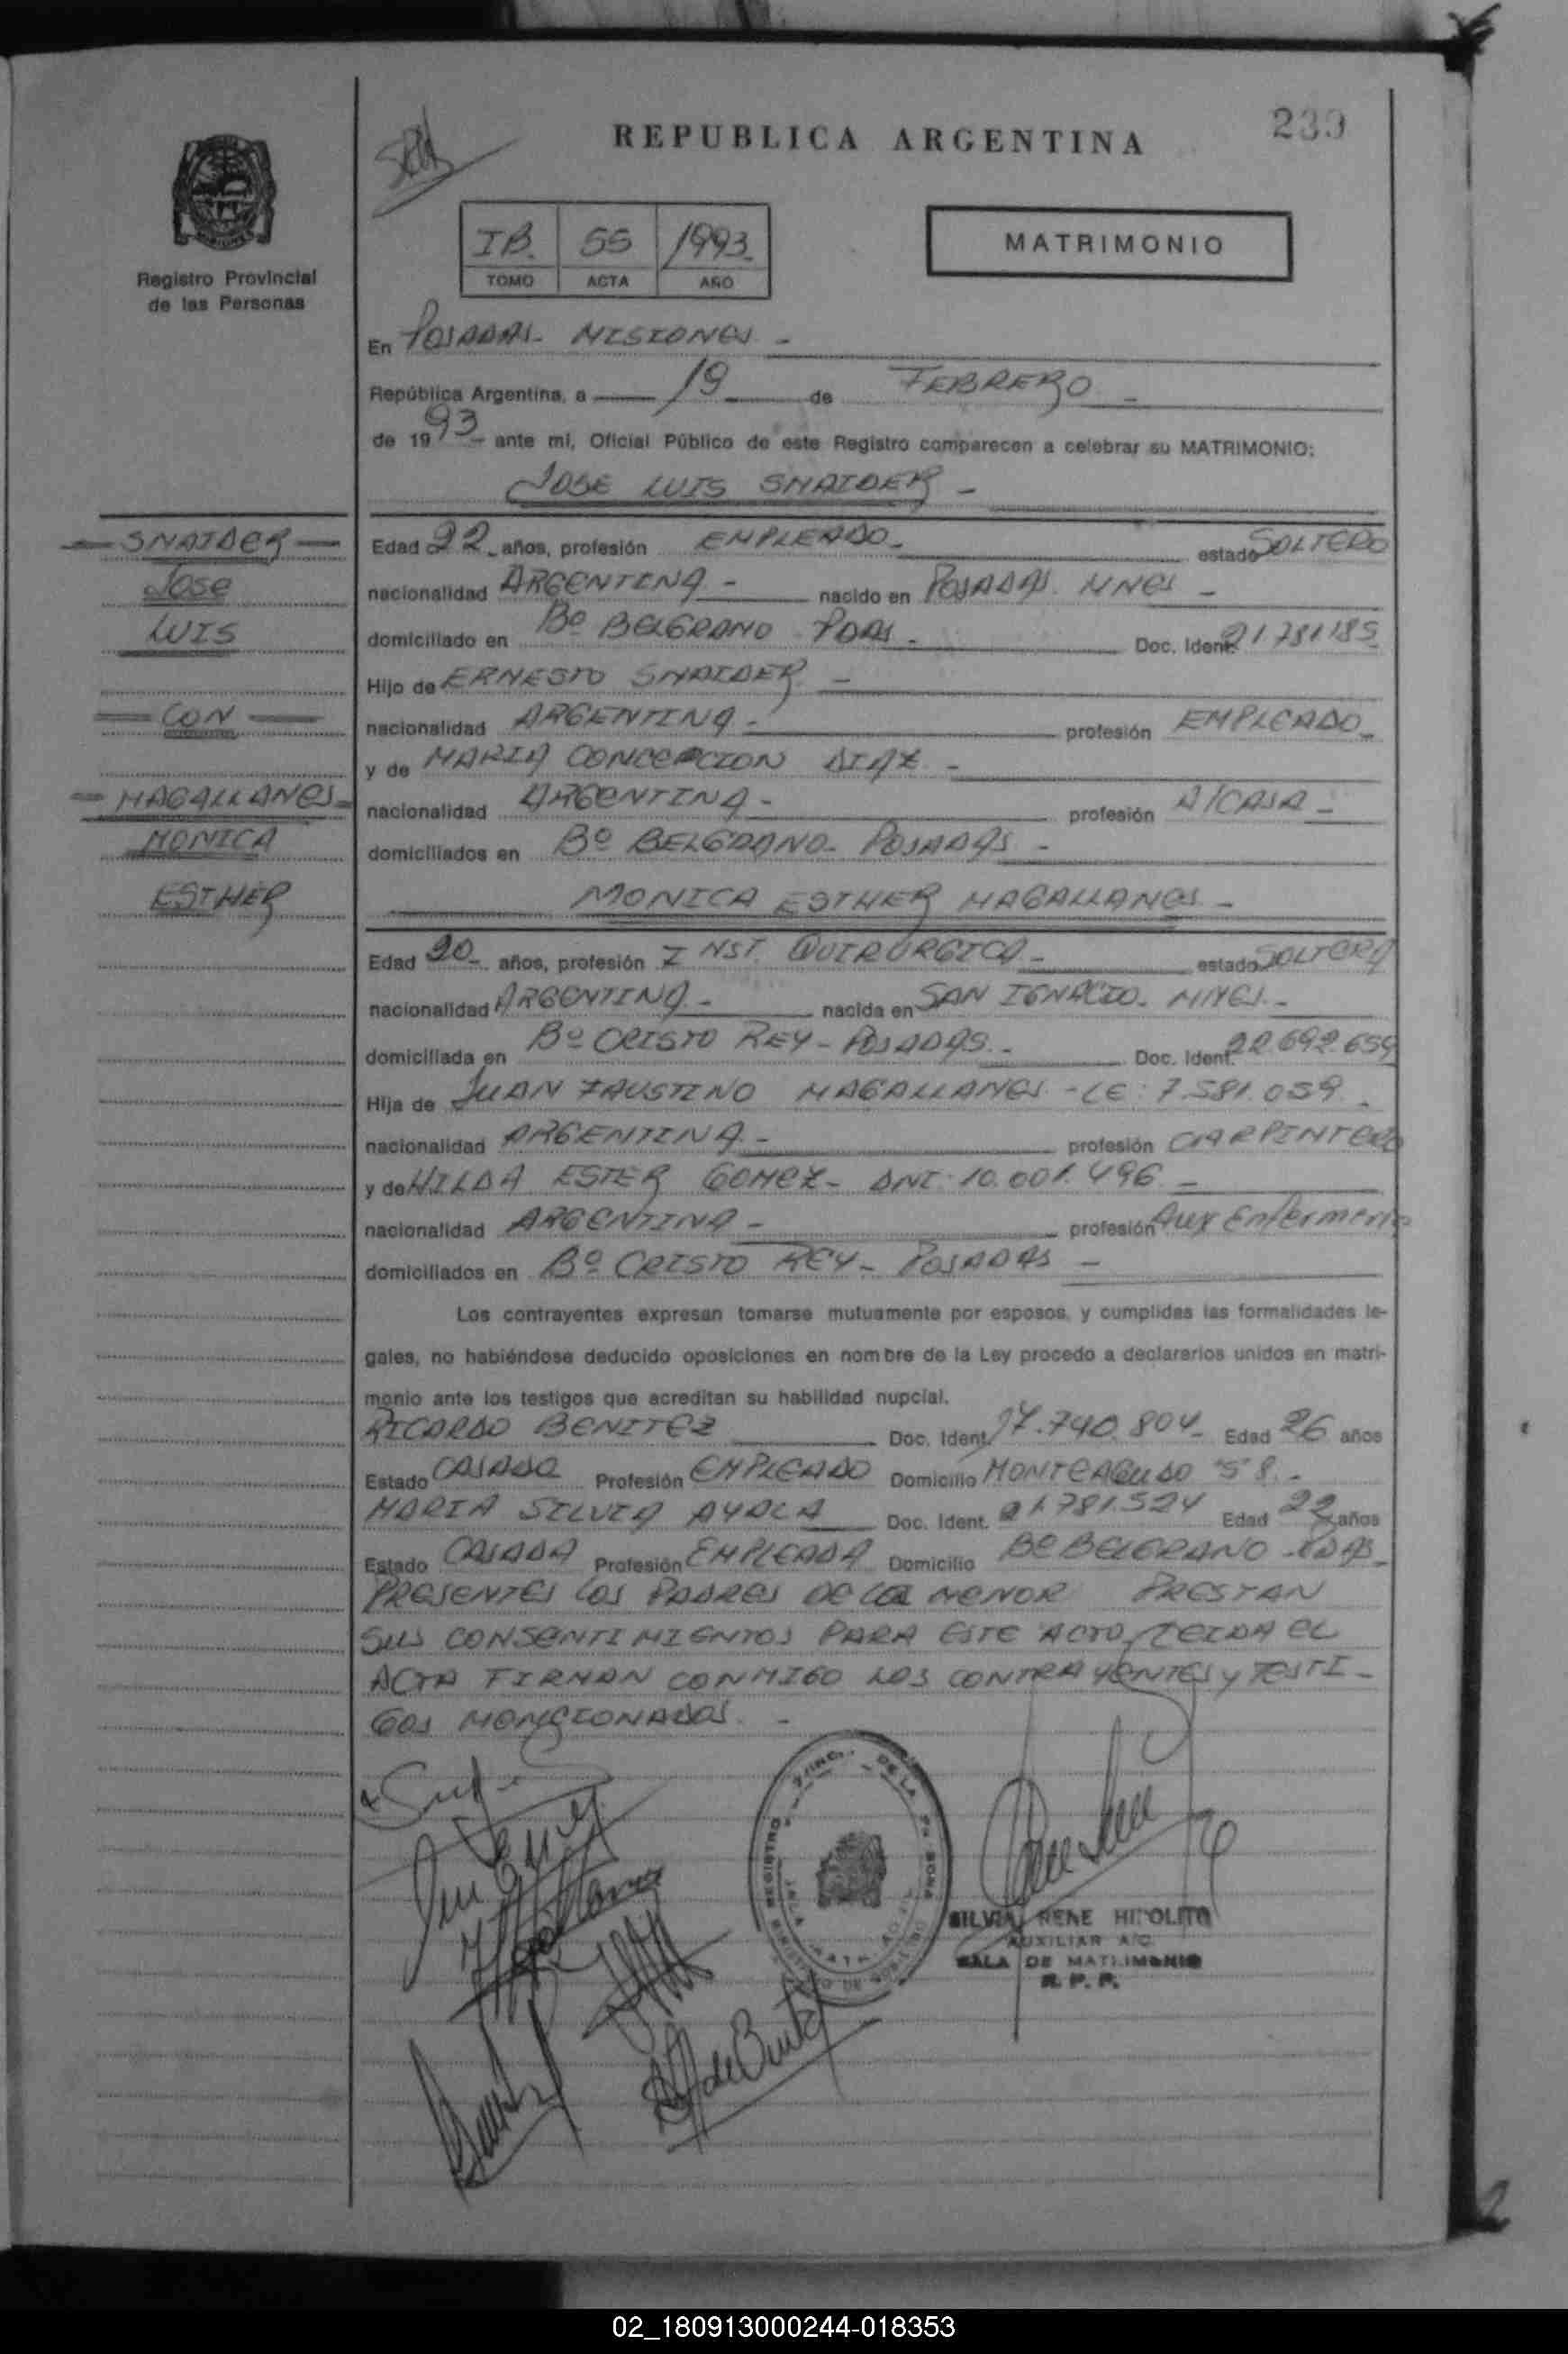 239
REPUBLICA ARGENTINA
Registro Provincial
de las Personas
IB. 55 1993
TOMO ACTA AÑO
MATRIMONIO
En POSADAS - MISIONES -
República Argentina, a 19 de FEBRERO -
de 1993 - ante mí, Oficial Público de este Registro comparecen a celebrar su MATRIMONIO:
JOSE LUIS SNAIDER -
SNAIDER
JOSE
LUIS
CON
MAGALLANES
MONICA
ESTHER
Edad 22 años, profesión EMPLEADO - estado SOLTERO
nacionalidad ARGENTINA - nacido en POSADAS. MNES -
domiciliado en Bº BELGRANO PDAS. Doc. Ident. 21781185
Hijo de ERNESTO SNAIDER -
nacionalidad ARGENTINA - profesión EMPLEADO -
y de MARIA CONCEPCION DIAZ -
nacionalidad ARGENTINA - profesión A/CASA -
domiciliados en Bº BELGRANO - POSADAS -
MONICA ESTHER MAGALLANES -
Edad 20 años, profesión INST. QUIRURGICA - estado SOLTERA
nacionalidad ARGENTINA - nacida en SAN IGNACIO - MNES. -
domiciliada en Bº CRISTO REY - POSADAS - Doc. Ident. 22.692.659
Hija de JUAN FAUSTINO MAGALLANES - LE: 7.581.059
nacionalidad ARGENTINA - profesión CARPINTERO
y de HILDA ESTER GOMEZ - DNI: 10.001.496 -
nacionalidad ARGENTINA - profesión Aux Enfermeria
domiciliados en Bº CRISTO REY - POSADAS -
Los contrayentes expresan tomarse mutuamente por esposos, y cumplidas las formalidades le-
gales, no habiéndose deducido oposiciones en nombre de la Ley procedo a declararlos unidos en matri-
monio ante los testigos que acreditan su habilidad nupcial.
RICARDO BENITEZ Doc. Ident. 17.740.804 - Edad 26 años
Estado CASADO Profesión EMPLEADO Domicilio MONTEAGUDO 58. -
MARIA SILVIA AYALA Doc. Ident. 21.781.524 Edad 22 años
Estado CASADA Profesión EMPLEADA Domicilio Bº BELGRANO - PDAS -
PRESENTES LOS PADRES DE LA MENOR PRESTAN
SUS CONSENTIMIENTOS PARA ESTE ACTO, LEIDA EL
ACTA FIRMAN CONMIGO LOS CONTRAYENTES y TESTI-
GOS MENCIONADOS. -
SILVIA RENE HIPOLITO
AUXILIAR A/C
SALA DE MATRIMONIO
R. P. P.
02_180913000244-018353